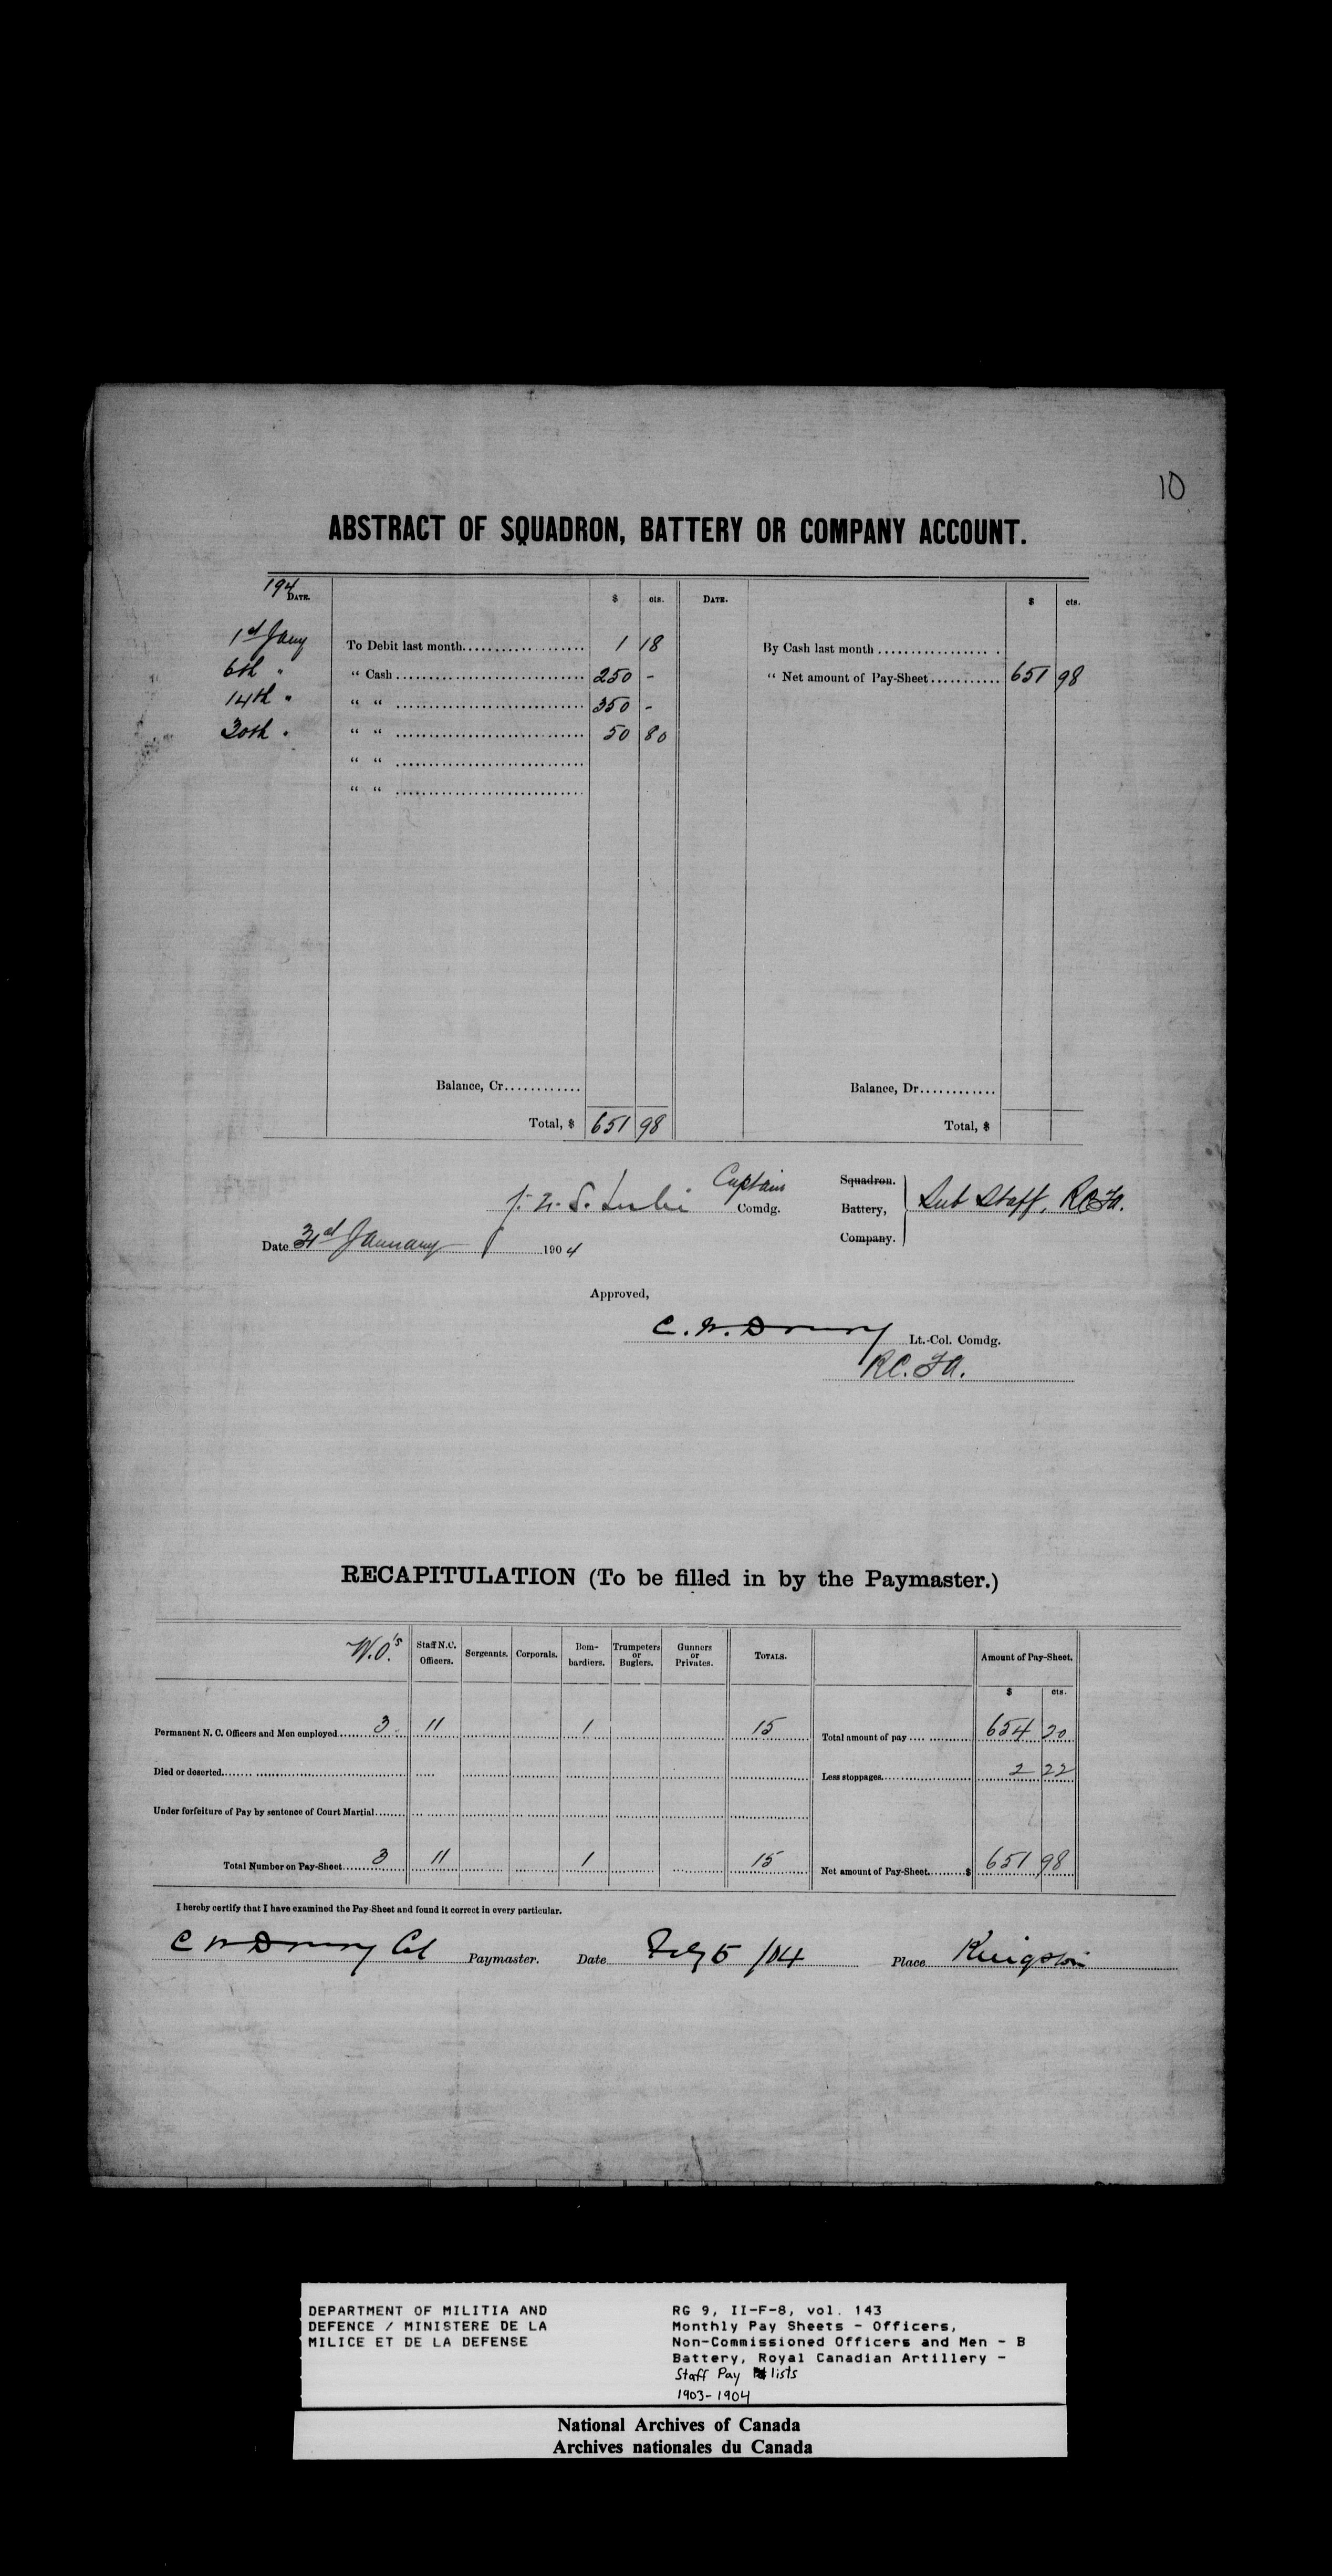 10
ABSTRACT OF SQUADRON, BATTERY OR COMPANY ACCOUNT.
194 DATE. $ cts. DATE. $ cts.
1st Jany To Debit last month 1 18 By Cash last month
6th " " Cash 250 - " Net amount of Pay-Sheet 651 98
14th " " " 350 -
30th " " " 50 80
" "
" "
Balance, Cr. Balance, Dr.
Total, $ 651 98 Total, $
J. N. S. Leslie Captain Comdg. Squadron. Battery, Company. Sub Staff, R.C.F.A.
Date 31st January 1904
Approved,
C. W. Drury Lt.-Col. Comdg.
R.C.F.A.
RECAPITULATION (To be filled in by the Paymaster.)
W.O's Staff N.C. Officers. Sergeants. Corporals. Bombardiers. Trumpeters or Buglers. Gunners or Privates. TOTALS. Amount of Pay-Sheet.
$ cts.
Permanent N. C. Officers and Men employed 3 11 1 15 Total amount of pay 654 20
Died or deserted Less stoppages 2 22
Under forfeiture of Pay by sentence of Court Martial
Total Number on Pay-Sheet 3 11 1 15 Net amount of Pay-Sheet $ 651 98
I hereby certify that I have examined the Pay-Sheet and found it correct in every particular.
C W Drury Col Paymaster. Date Feby 5 /04 Place Kingston
DEPARTMENT OF MILITIA AND
DEFENCE / MINISTERE DE LA
MILICE ET DE LA DEFENSE
RG 9, II-F-8, vol. 143
Monthly Pay Sheets - Officers,
Non-Commissioned Officers and Men - B
Battery, Royal Canadian Artillery -
Staff Pay lists
1903-1904
National Archives of Canada
Archives nationales du Canada